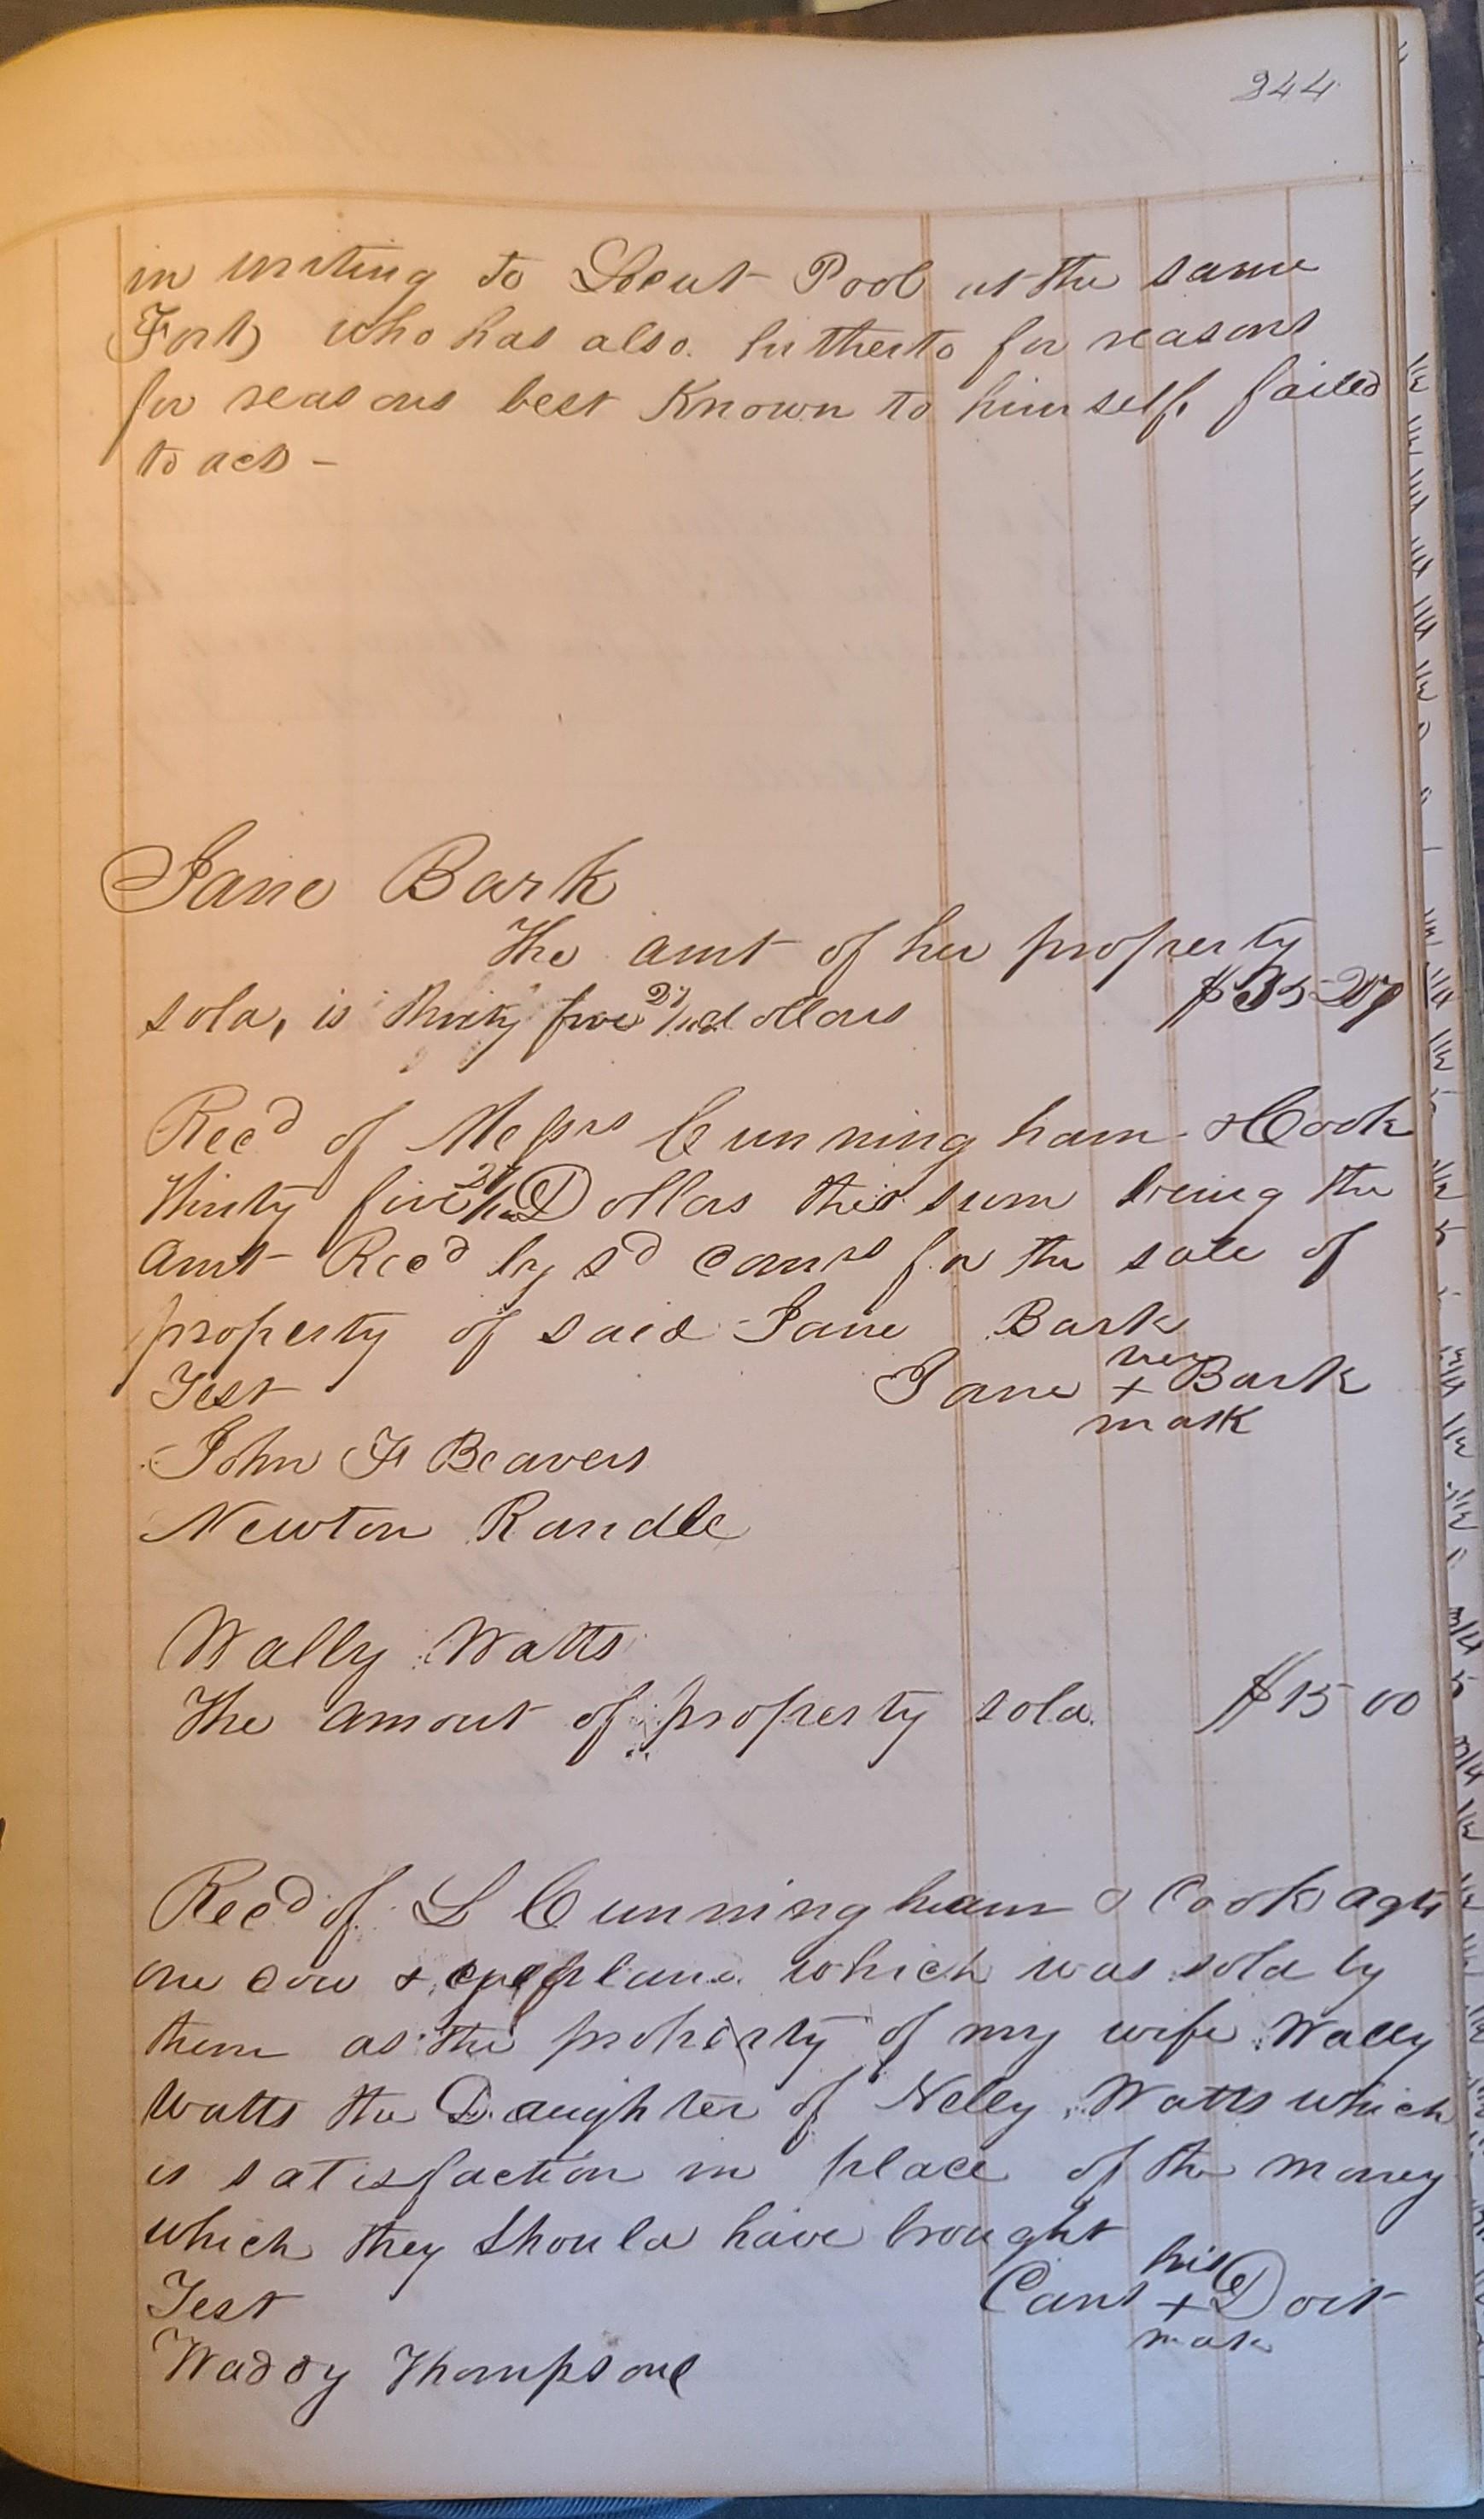 244
in writing to Lieut Pool at the same
Fort, who has also hitherto for reasons
for reasons best Known to himself, failed
to act -
Jane Bark
The amt of her property
sold, is thirty five 27/100 dollars $35-27
Recd of Messrs Cunningham & Cook
thirty five 27/100 Dollars this sum being the
amt Recd by sd comrs for the sale of
property of said Jane Bark
Test Jane her + Bark
mark
John F Beavers
Newton Randle
Wally Watts
The amout of property sold. $15 00
Recd of L Cunningham & Cook agts
one cow & which was sold by
them as the property of my wife Wally
Watts the Daughter of Nelly Watts which
is satisfaction in place of the money
which they should have brought
Test Cant his + Doit
mark
Waddy Thompson